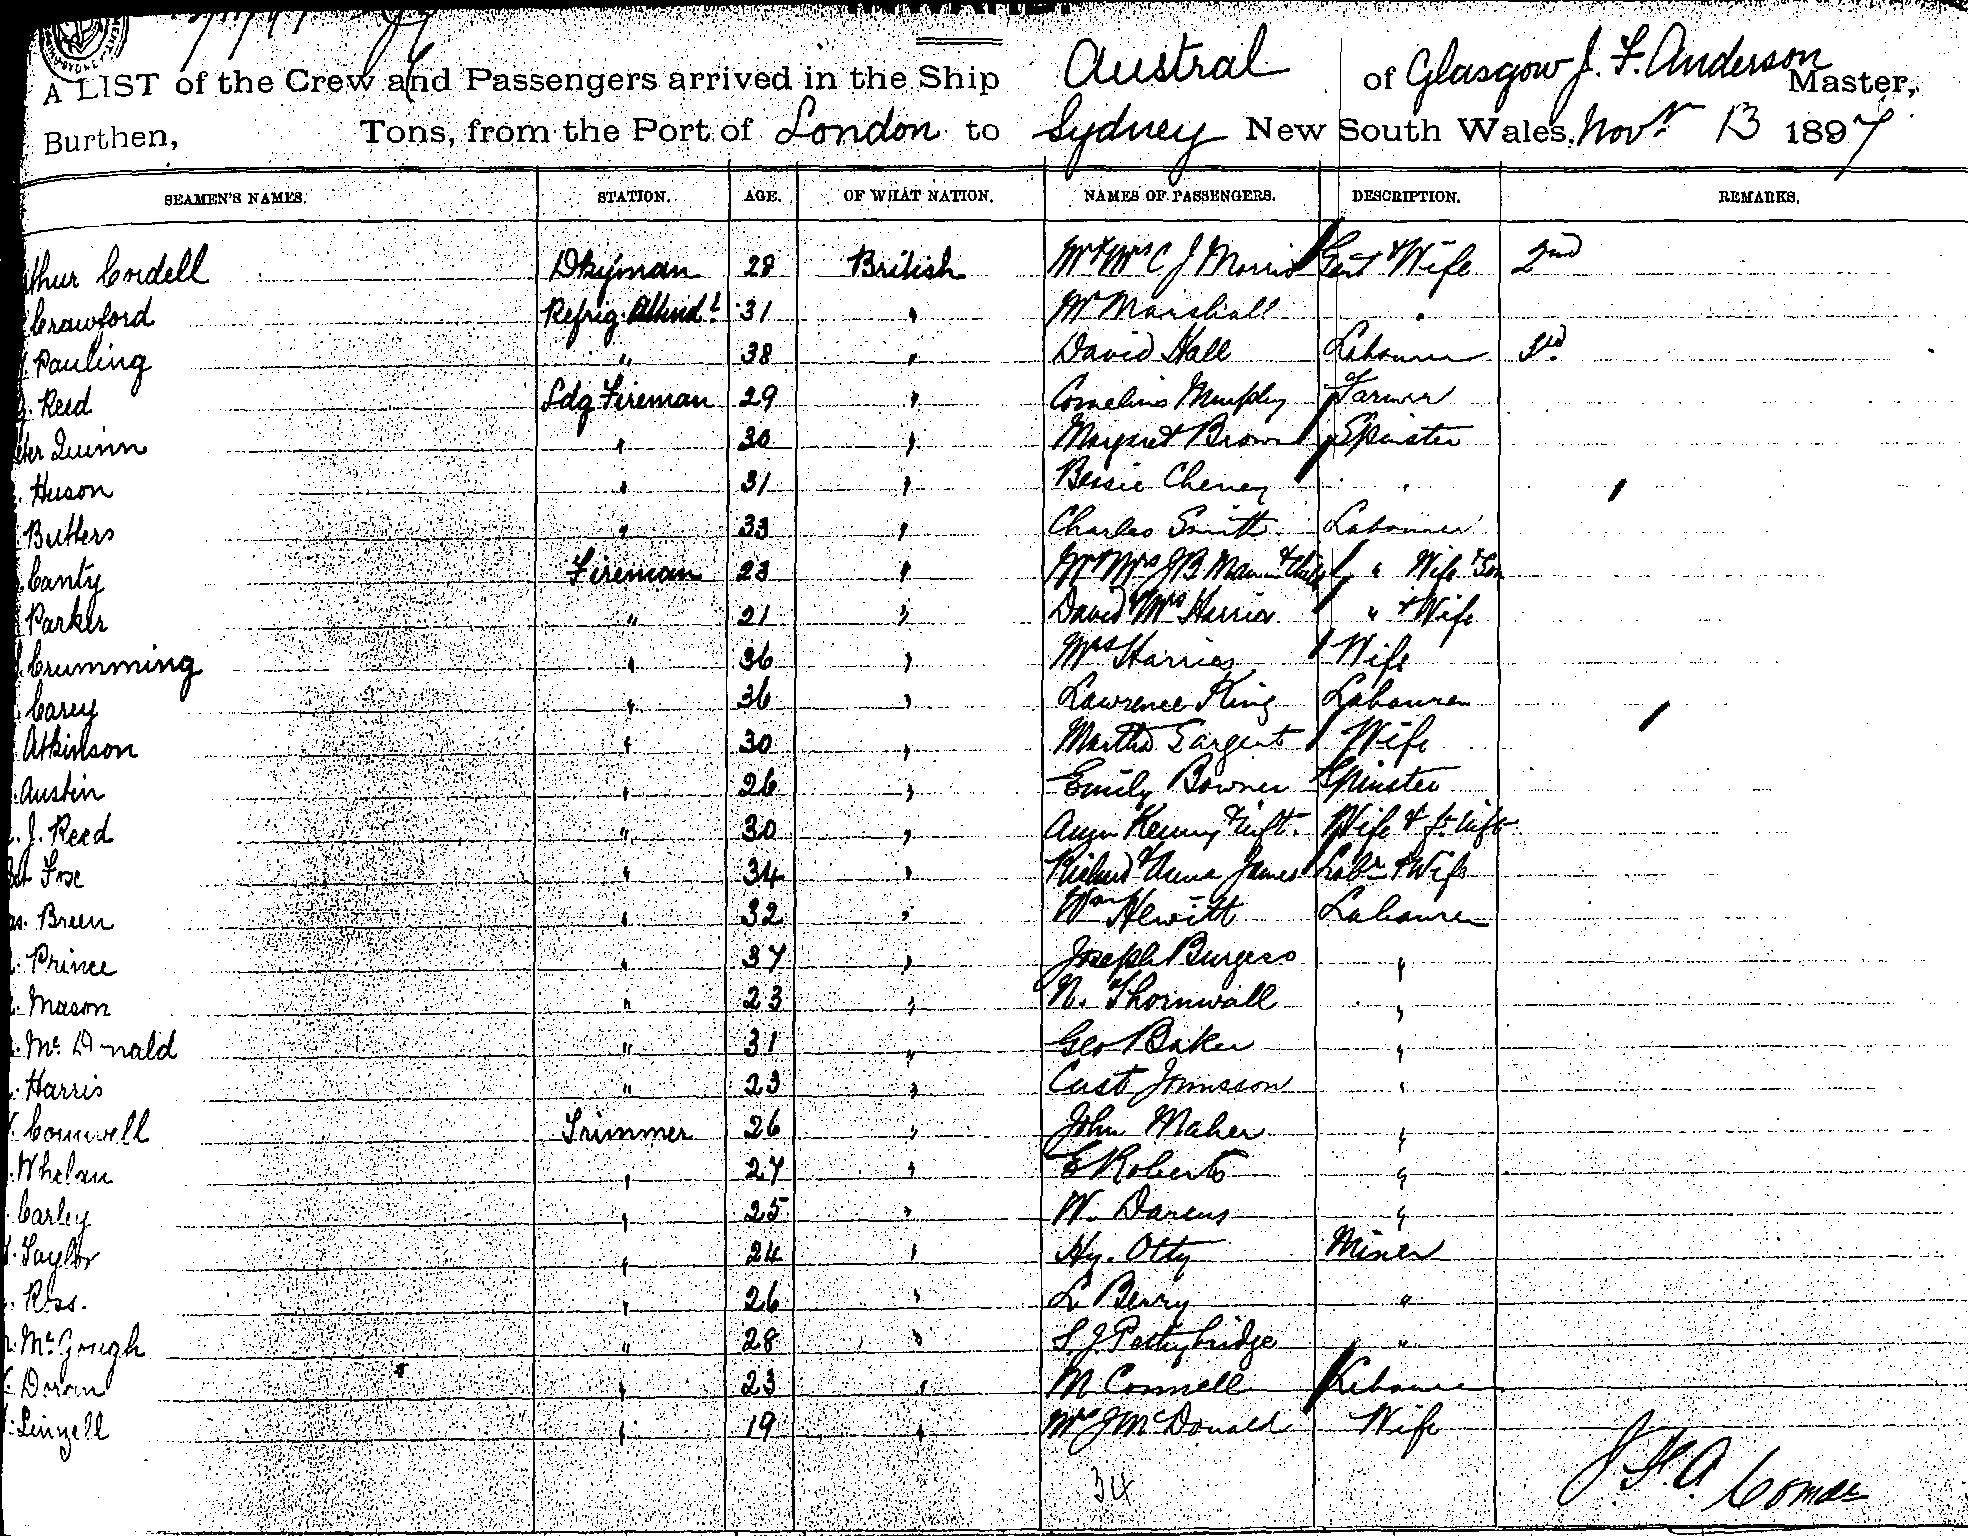 A LIST of the Crew and Passengers arrived in the Ship Austral of Glasgow J. F. Anderson Master,
Burthen, Tons, from the Port of London to Sydney New South Wales, Novr 13 1897
SEAMEN'S NAMES. STATION. AGE. OF WHAT NATION. NAMES OF PASSENGERS. DESCRIPTION. REMARKS.
thur Cordell Dkyman 28 British Mr & Mrs C J Morris Gent & Wife 2nd
Crawford Refrig. Attendt 31 " Mr Marshall "
Pauling " 38 " David Hall Labourer 3rd
Reed Ldg Fireman 29 " Cornelius Murphy Farmer
ter Quinn " 30 " Margaret Brown Spinster
Huson " 31 " Bessie Cheney "
Butters " 33 " Charles Smith Labourer
Canty Fireman 23 " Mr Mrs J B Mann & Child " Wife & Son
Parker " 21 " David & Mrs Harries " & Wife
Crumming " 36 " Mrs Harries Wife
Carey " 36 " Lawrence King Labourer
Atkinson " 30 " Martha Sargent Wife
Austin " 26 " Emily Bowner Spinster
J. Reed " 30 " Kenny & Inft. Wife & Inft
Fox " 34 " Richard & Anna James Labr & Wife
as. Breen " 32 " Wm Hewitt Labourer
Prince " 37 " Joseph Burgess "
Mason " 23 " N. Thornwall "
Mc Donald " 31 " Geo Baker "
Harris " 23 " Cast Jonnsson "
Cornwell Trimmer 26 " John Maher "
Whelan " 27 " E Roberts "
Carley " 25 " W. Darcus "
Taylor " 24 " Hy. Otty Miner
Ross. " 26 " L Berry "
McGough " 28 " S J Pethybridge "
Doran " 23 " M Connell Labourer
Linzell " 19 " Mrs J McDonald Wife
34
J. F. A. Comdr